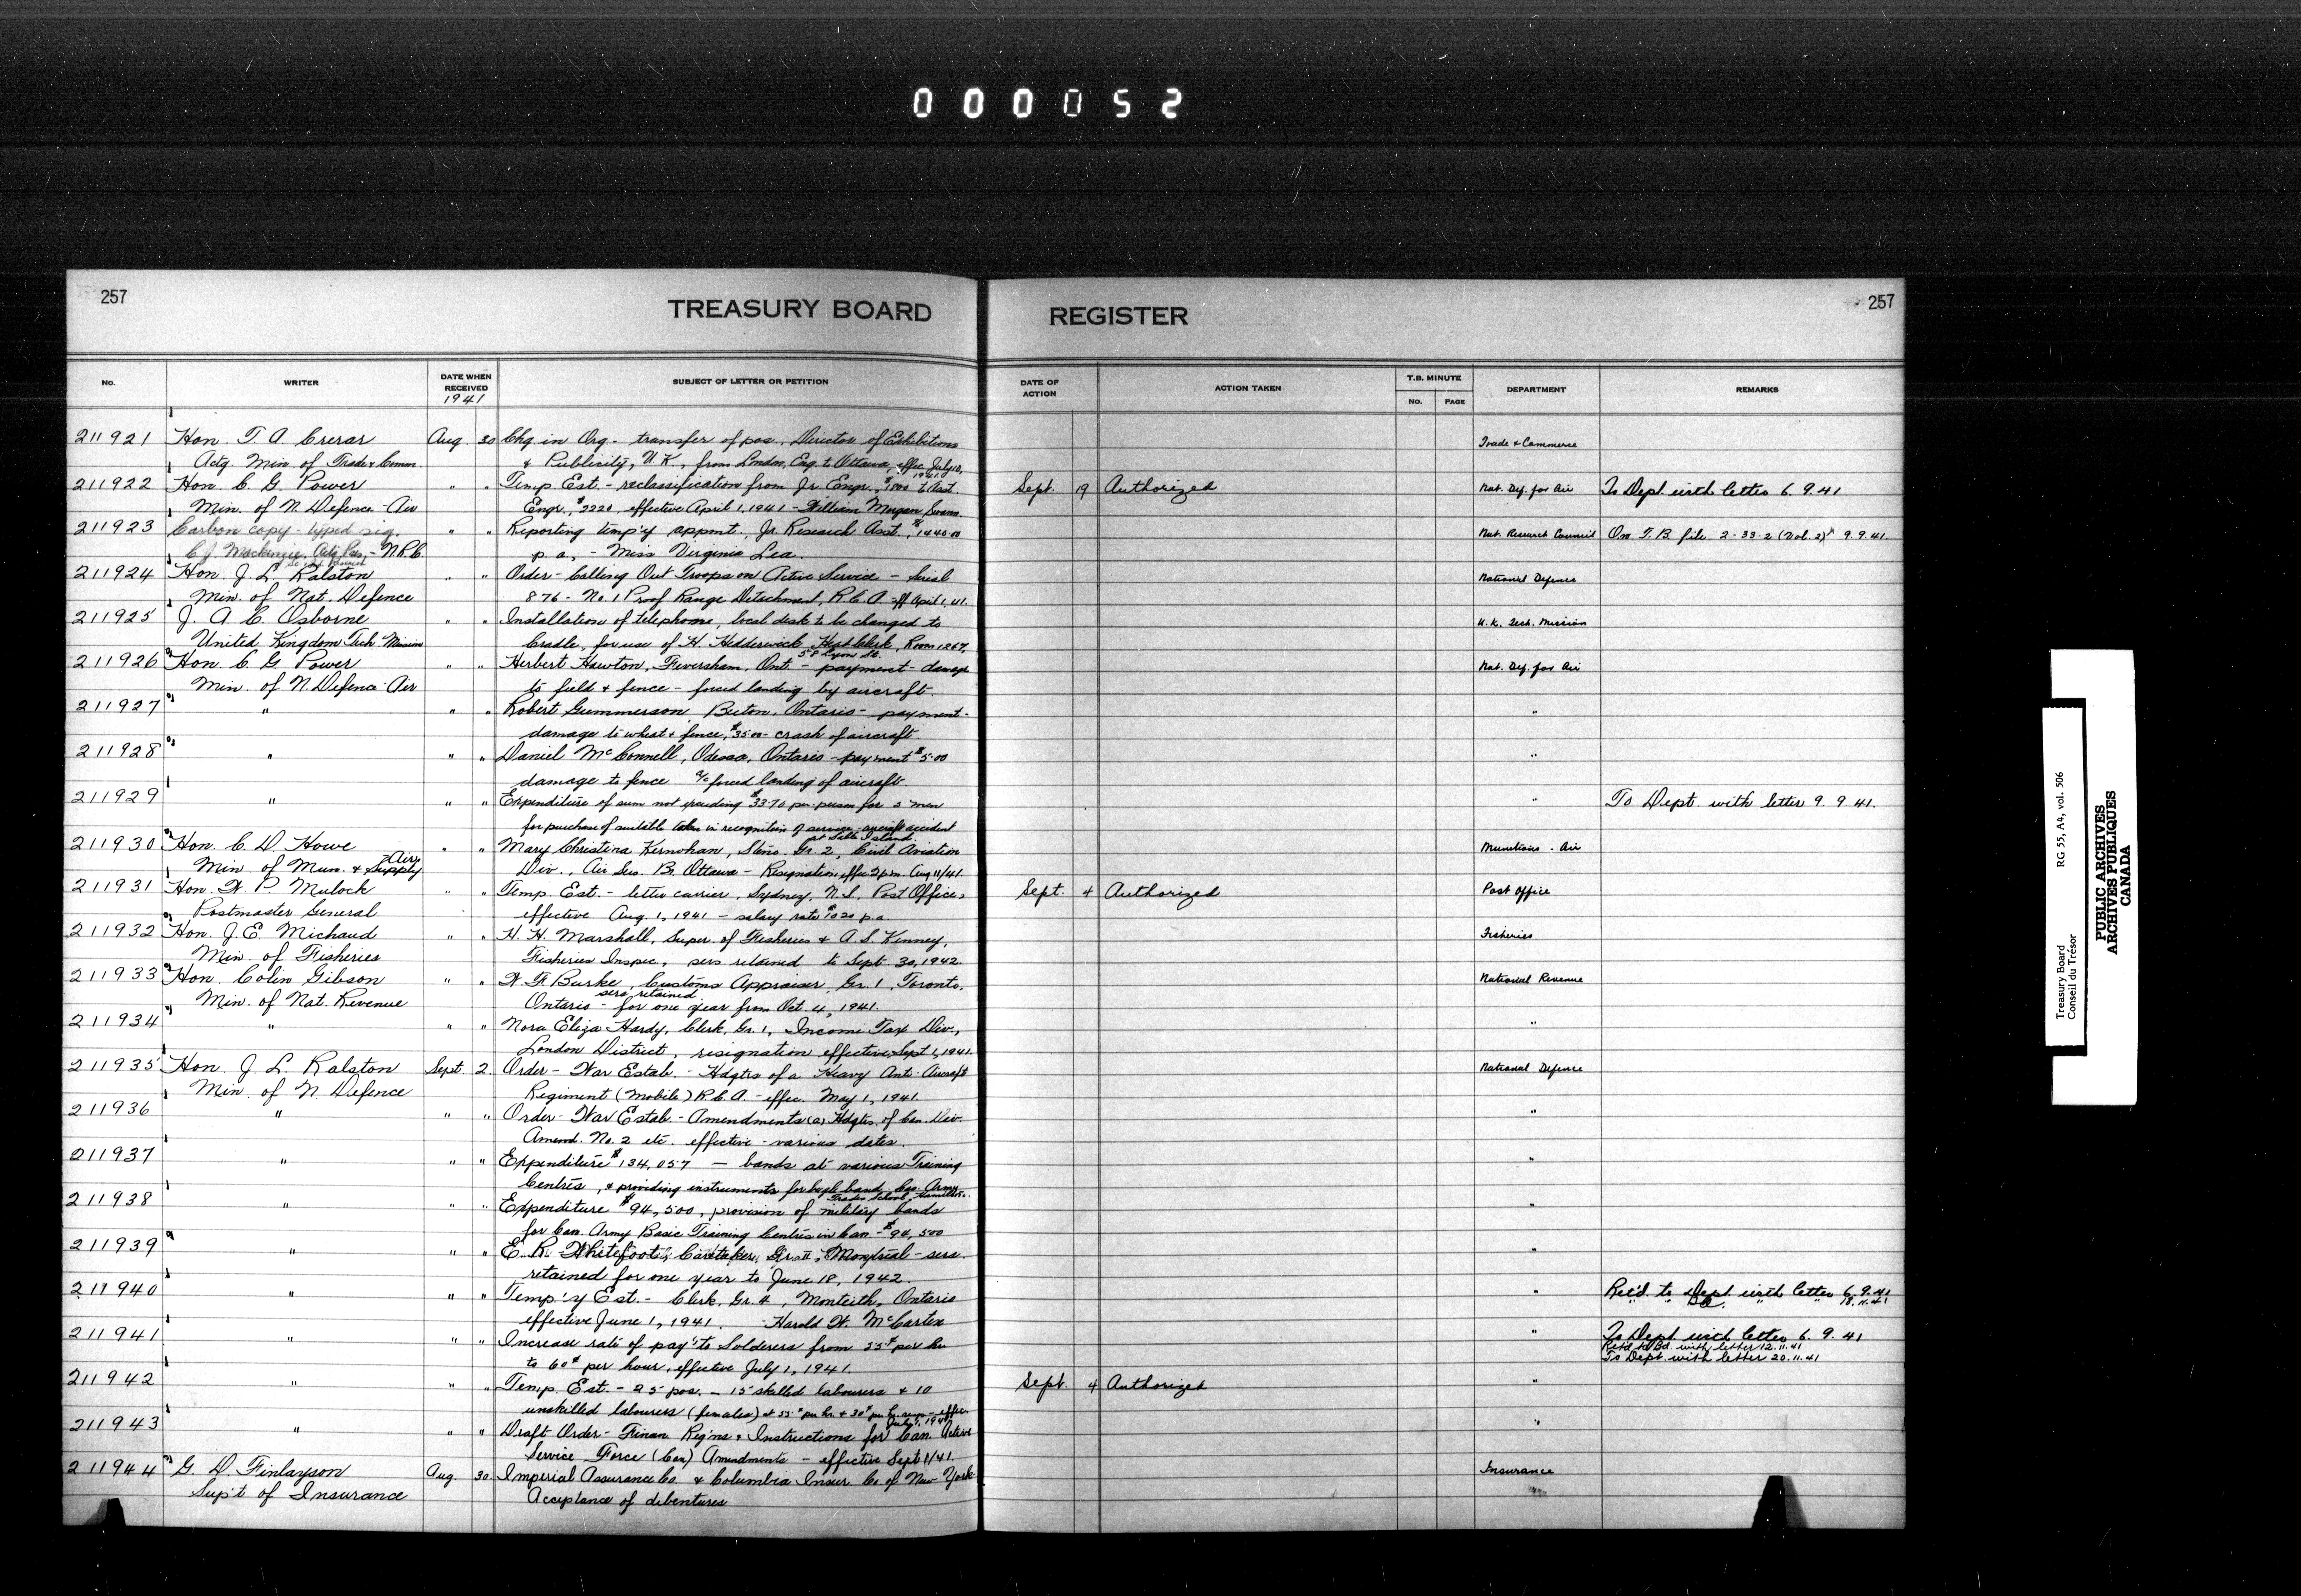 000052
257
TREASURY BOARD
REGISTER
257
No.
WRITER
DATE WHEN RECEIVED
1941
SUBJECT OF LETTER OR PETITION
DATE OF ACTION
ACTION TAKEN
T.B. MINUTE
No.
PAGE
DEPARTMENT
REMARKS
211921 Hon. T. A. Crerar Aug. 30 Chg. in Org. - transfer of pos. Director of Exhibitions Trade & Commerce
Actg. Min. of Trade & Comm. & Publicity, U.K., from London, Eng. to Ottawa, effec July 10, 1941.
211922 Hon. C. G. Power " " Temp. Est. - reclassification from Jr. Engr., $1800 to Asst. Sept. 19 Authorized Nat. Def. for Air To Dept. with letter 6.9.41
Min. of N. Defence - Air Engr., $2220, effective April 1, 1941 - William Morgan Evans.
211923 Carbon copy - typed sig. " " Reporting temp'y appmt., Jr. Research Asst., $1440.00 Nat. Research Council On T.B. file 2-33-2 (Vol. 2) 9.9.41.
C. J. Mackenzie, Actg. Pres. - N.R.C. p.a. - Miss Virginia Lea.
211924 Hon. J. L. Ralston " " Order - Calling Out Troops on Active Service - Serial National Defence
Min. of Nat. Defence 876 - No. 1 Proof Range Detachment, R.C.A. - eff April 1, 41.
211925 J. A. C. Osborne " " Installation of telephone, local desk to be changed to U.K. Tech. Mission
United Kingdom Tech. Mission Cradle, for use of H. Hedderwick, Head Clerk, Room 1267,
58 Lyon St.
211926 Hon. C. G. Power " " Herbert Hawton, Feversham, Ont. - payment - damage Nat. Def. for Air
Min. of N. Defence - Air to field & fence - forced landing by aircraft.
211927 " " " Robert Gummerson, Beeton, Ontario - payment - "
damage to wheat & fence, $35.00 - crash of aircraft
211928 " " " Daniel McConnell, Odessa, Ontario - payment $5.00 "
damage to fence a/c forced landing of aircraft.
211929 " " " Expenditure of sum not exceeding $33.70 per person for 3 men " To Dept. with letter 9.9.41.
for purchase of suitable token in recognition of services - aircraft accident
at Sable Island.
211930 Hon. C. D. Howe " " Mary Christina Kernohan, Steno. Gr. 2, Civil Aviation Munitions - Air
Min. of Mun. & Supply Air Div., Air Ser. Br. Ottawa - Resignation, effec 2 p.m. Aug 11/41.
211931 Hon. W. P. Mulock " " Temp. Est. - letter carrier, Sydney, N.S. Post Office, Sept. 4 Authorized Post Office
Postmaster General effective Aug. 1, 1941 - salary rate $1020 p.a.
211932 Hon. J. E. Michaud " " H. H. Marshall, Super. of Fisheries & A. S. Kenney, Fisheries
Min. of Fisheries Fisheries Inspec., sers. retained to Sept. 30, 1942.
211933 Hon. Colin Gibson " " W. F. Burke, Customs Appraiser, Gr. 1, Toronto, National Revenue
Min. of Nat. Revenue Ontario - sers. retained for one year from Oct. 4, 1941.
211934 " " " Nora Eliza Hardy, Clerk, Gr. 1, Income Tax Div., "
London District, resignation effective Sept 1, 1941.
211935 Hon. J. L. Ralston Sept. 2 Order - War Estab. - Hdqtrs of a Heavy Anti-Aircraft National Defence
Min. of N. Defence Regiment (Mobile) R.C.A. - effec. May 1, 1941.
211936 " " " Order - War Estab. - Amendments (a) Hdqtrs. of Can. Div. "
Amend. No. 2 etc. effective - various dates.
211937 " " " Expenditure $134,057 - bands at various Training "
Centres, & providing instruments for bugle band - Can. Army
Trades School, Hamilton.
211938 " " " Expenditure $94,500, provision of military bands "
for Can. Army Basic Training Centres in Can. - $94,500
211939 " " " E. R. Whitefoot, Caretaker, Gr. II, Montreal - sers. "
retained for one year to June 18, 1942.
211940 " " " Temp'y Est. - Clerk, Gr. 4, Monteith, Ontario " Ret'd. to Dept. with letter 6.9.41
effective June 1, 1941. Harold W. McCarten " " Do. " " 18.11.41
211941 " " " Increase rate of pay to Solderers from 55¢ per hr " To Dept. with letter 6.9.41
to 60¢ per hour, effective July 1, 1941. Ret'd to Bd. with letter 12.11.41
To Dept. with letter 20.11.41
211942 " " " Temp. Est. - 25 pos. - 15 skilled labourers & 10 Sept. 4 Authorized "
unskilled labourers (females) at 35¢ per hr. & 30¢ per hr. - effec.
July 1, 1941.
211943 " " " Draft Order - Finan. Reg'ns & Instructions for Can. Active "
Service Force (Can) Amendments - effective Sept 1/41.
211944 G. D. Finlayson Aug. 30 Imperial Assurance Co. & Columbia Insur. Co. of New York Insurance
Sup't of Insurance Acceptance of debentures
Treasury Board
Conseil du Trésor
RG 55, A4, vol. 506
PUBLIC ARCHIVES
ARCHIVES PUBLIQUES
CANADA